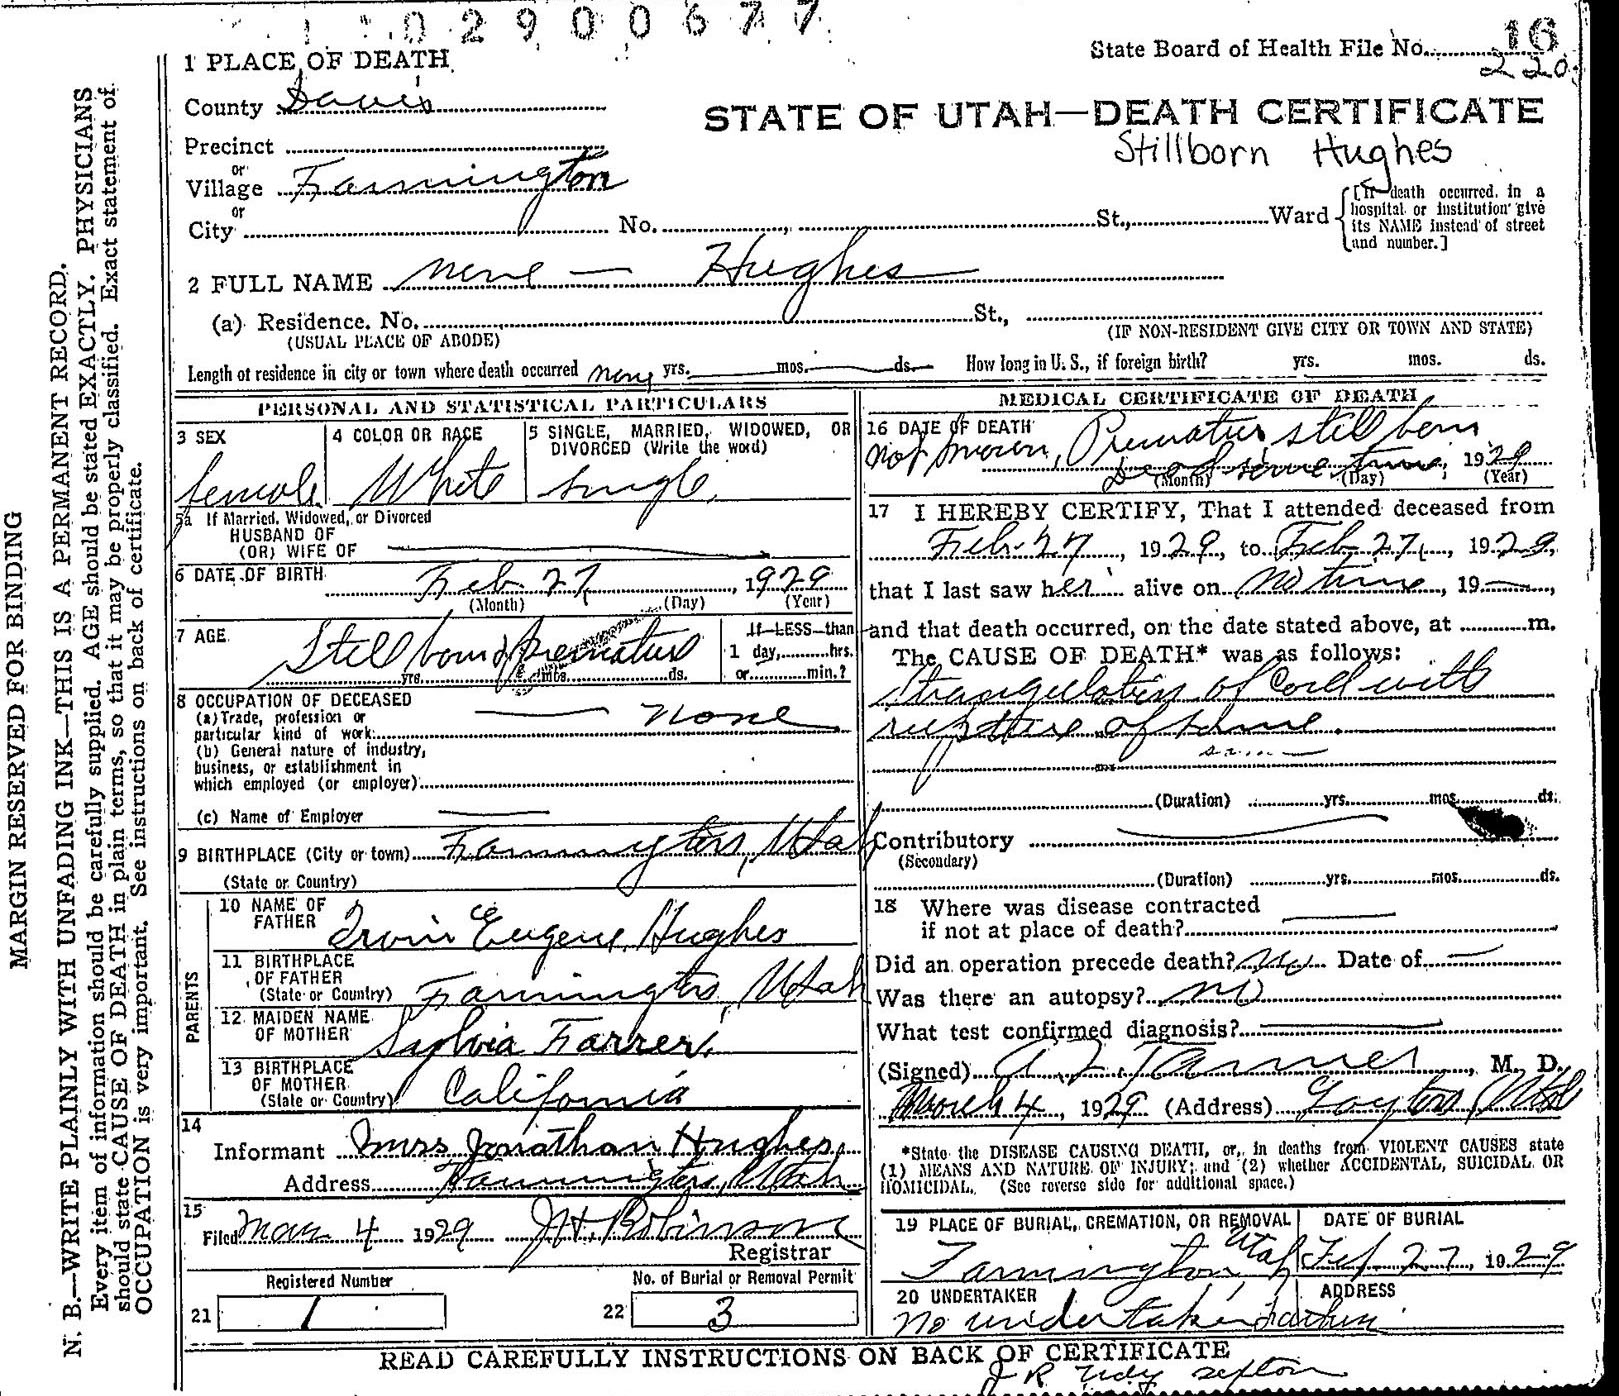 02900677
State Board of Health File No. 16
220
1 PLACE OF DEATH
County Davis
STATE OF UTAH—DEATH CERTIFICATE
Stillborn Hughes
Precinct
or
Village Farmington
or
City No. St., Ward
[If death occurred in a hospital or institution give its NAME instead of street and number.]
2 FULL NAME none — Hughes
(a) Residence. No. St.,
(USUAL PLACE OF ABODE) (IF NON-RESIDENT GIVE CITY OR TOWN AND STATE)
Length of residence in city or town where death occurred none yrs. mos. ds. How long in U. S., if foreign birth? yrs. mos. ds.
PERSONAL AND STATISTICAL PARTICULARS
3 SEX 4 COLOR OR RACE 5 SINGLE, MARRIED, WIDOWED, OR
DIVORCED (Write the word)
female White single
5a If Married, Widowed, or Divorced
HUSBAND OF
(OR) WIFE OF
6 DATE OF BIRTH Feb 27, 1929
(Month) (Day) (Year)
7 AGE Still born & premature
yrs. mos. ds.
If LESS than
1 day, hrs.
or min.?
8 OCCUPATION OF DECEASED
(a) Trade, profession or
particular kind of work — none
(b) General nature of industry,
business, or establishment in
which employed (or employer)
(c) Name of Employer
9 BIRTHPLACE (City or town) Farmington, Utah
(State or Country)
PARENTS
10 NAME OF
FATHER Irvin Eugene Hughes
11 BIRTHPLACE
OF FATHER
(State or Country) Farmington, Utah
12 MAIDEN NAME
OF MOTHER Sylvia Farrer
13 BIRTHPLACE
OF MOTHER
(State or Country) California
14
Informant Mrs Jonathan Hughes
Address Farmington, Utah
15
Filed Mar 4 1929 J.H. Robinson
Registrar
Registered Number No. of Burial or Removal Permit
21 1 22 3
MEDICAL CERTIFICATE OF DEATH
16 DATE OF DEATH
not known, Premature still born
Dead some time, 1929
(Month) (Day) (Year)
17 I HEREBY CERTIFY, That I attended deceased from
Feb. 27, 1929, to Feb 27, 1929,
that I last saw her alive on no time, 19—,
and that death occurred, on the date stated above, at m.
The CAUSE OF DEATH* was as follows:
Strangulation of Cord with
rupture of same
same
(Duration) yrs. mos. ds.
Contributory
(Secondary)
(Duration) yrs. mos. ds.
18 Where was disease contracted
if not at place of death?
Did an operation precede death? No Date of —
Was there an autopsy? no
What test confirmed diagnosis?
(Signed) A Z Tanner, M. D.
March 4, 1929 (Address) Layton, Utah
*State the DISEASE CAUSING DEATH, or, in deaths from VIOLENT CAUSES state
(1) MEANS AND NATURE OF INJURY; and (2) whether ACCIDENTAL, SUICIDAL OR
HOMICIDAL. (See reverse side for additional space.)
19 PLACE OF BURIAL, CREMATION, OR REMOVAL DATE OF BURIAL
Farmington, Utah Feb 27, 1929
20 UNDERTAKER ADDRESS
No undertaker
READ CAREFULLY INSTRUCTIONS ON BACK OF CERTIFICATE
J R Udy sexton
MARGIN RESERVED FOR BINDING
N. B.—WRITE PLAINLY WITH UNFADING INK—THIS IS A PERMANENT RECORD.
Every item of information should be carefully supplied. AGE should be stated EXACTLY. PHYSICIANS
should state CAUSE OF DEATH in plain terms, so that it may be properly classified. Exact statement of
OCCUPATION is very important. See instructions on back of certificate.